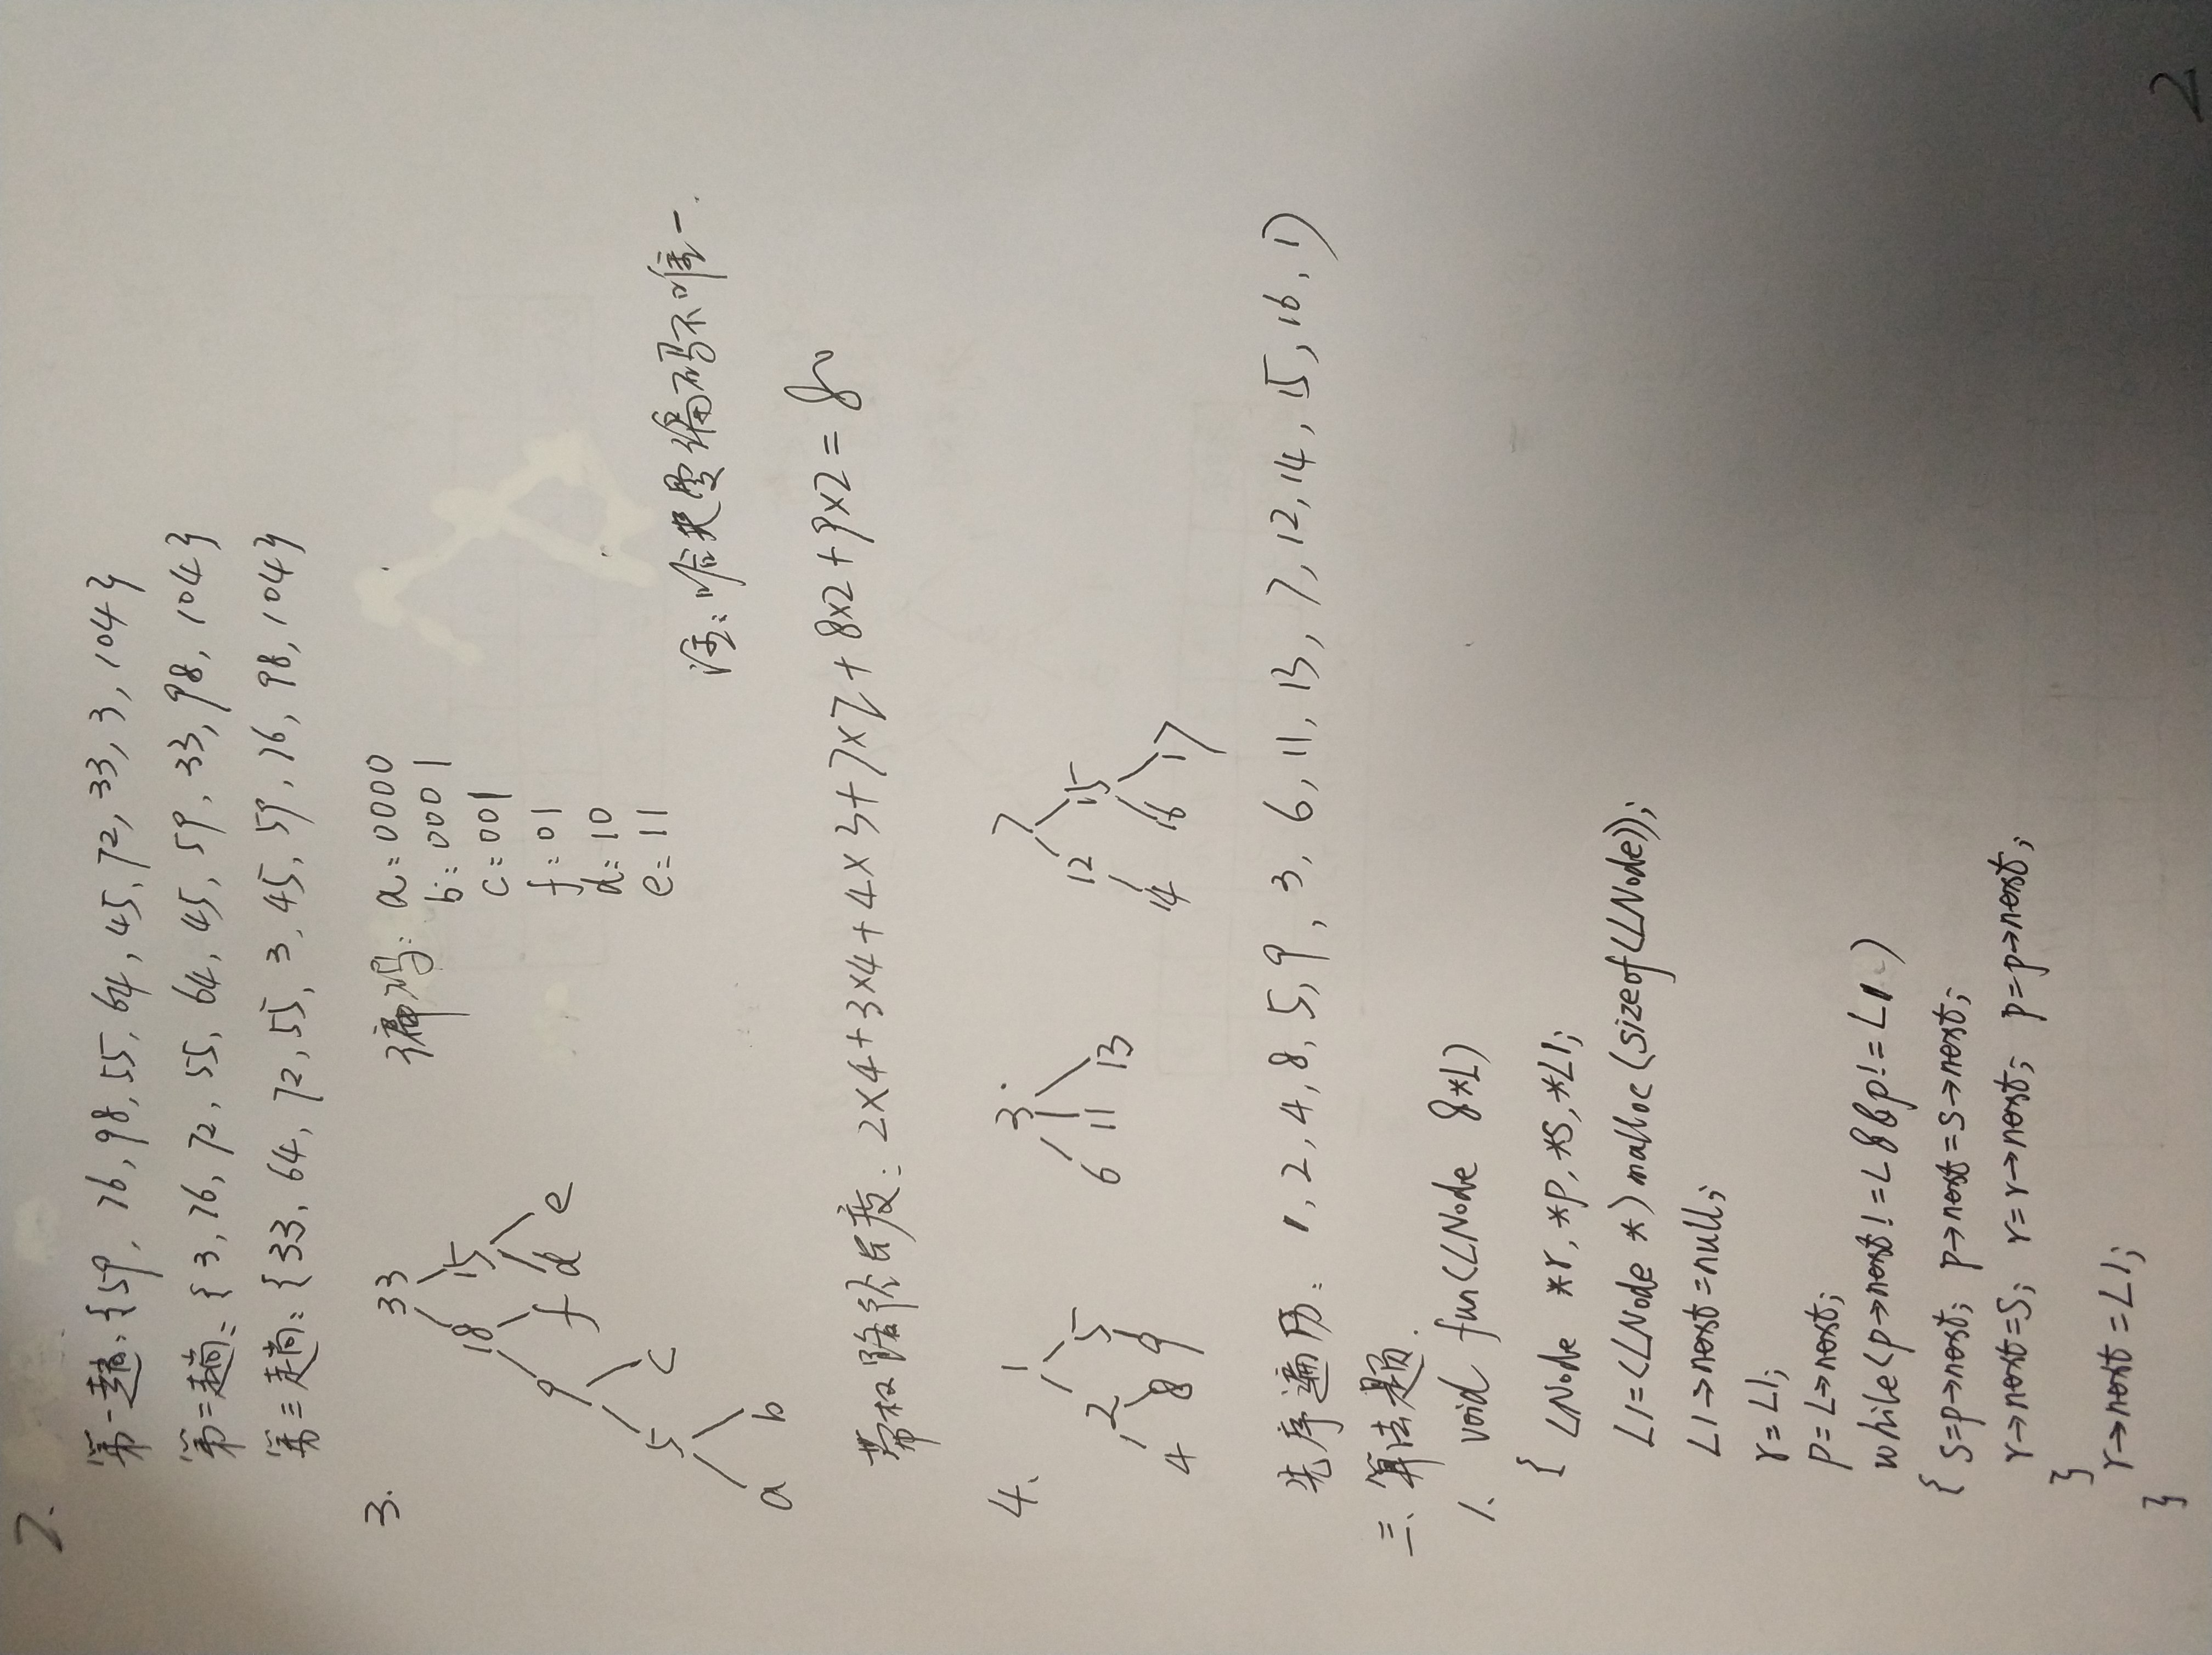 2.
第一趟:{59, 76, 98, 55, 64, 45, 72, 33, 3, 104}
第二趟:{3, 76, 72, 55, 64, 45, 59, 33, 98, 104}
第三趟:{33, 64, 72, 55, 3, 45, 59, 76, 98, 104}
3.
33
18 15
9 f d e
5 c
a b
编码: a:0000
b:0001
c:001
f:01
d:10
e:11
注:哈夫曼编码不唯一.
带权路径长度: 2×4+3×4+4×3+7×2+8×2+9×2=80
4、
1 3 7
2 5 6 11 13 12 15
4 8 9 14 16 17
先序遍历: 1, 2, 4, 8, 5, 9, 3, 6, 11, 13, 7, 12, 14, 15, 16, 17
三、算法题.
1、 void fun(LNode &*L)
{ LNode *r, *p, *s, *L1;
L1=(LNode *)malloc(sizeof(LNode));
L1→next=null;
r=L1;
p=L→next;
while(p→next!=L&&p!=L1)
{ s=p→next; p→next=s→next;
r→next=s; r=r→next; p=p→next;
}
r→next=L1;
}
2